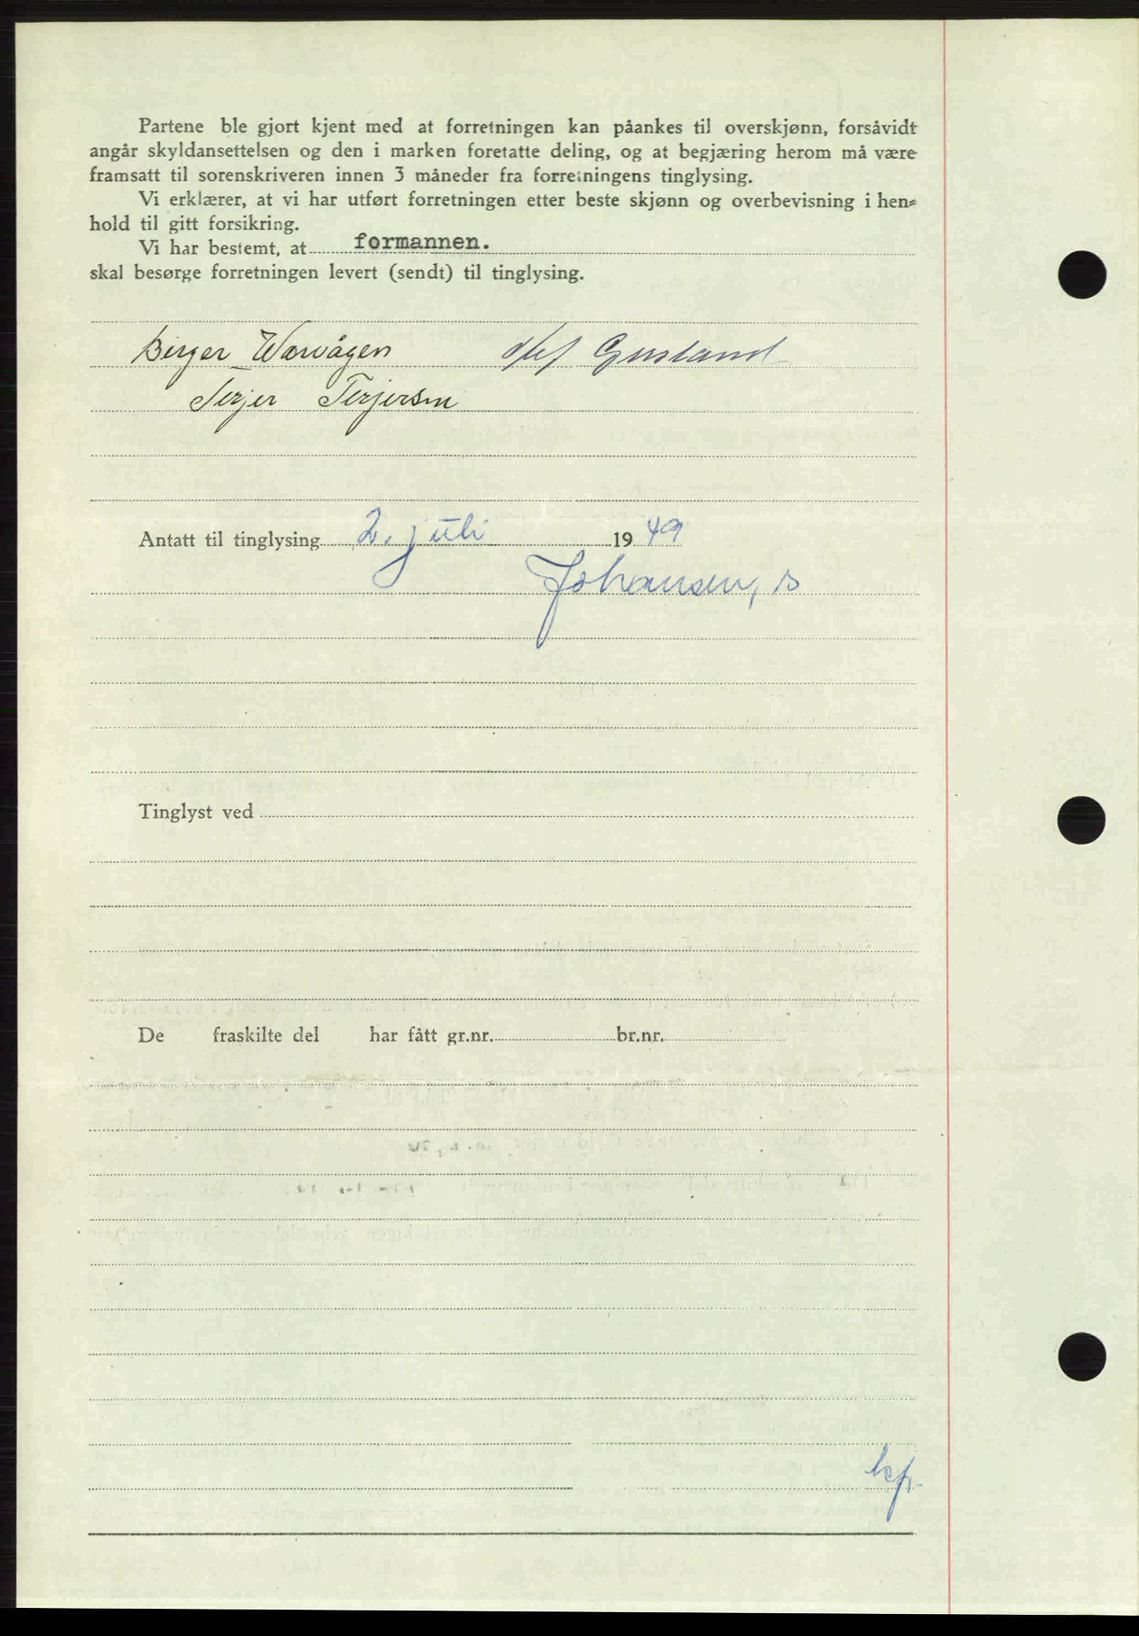 Partene ble gjort kjent med at forretningen kan påankes til overskjønn, forsåvidt
angår skyldansettelsen og den i marken foretatte deling, og at begjæring herom må være
framsatt til sorenskriveren innen 3 måneder fra forretningens tinglysing.
Vi erklærer, at vi har utført forretningen etter beste skjønn og overbevisning i hen=
hold til gitt forsikring.
Vi har bestemt, at formannen.
skal besørge forretningen levert (sendt) til tinglysing.
Birger Warvågen
Terjer Terjersen
Antatt til tinglysing 2. juli 1949
Johansen, s
Tinglyst ved
De fraskilte del har fått gr.nr. br.nr.